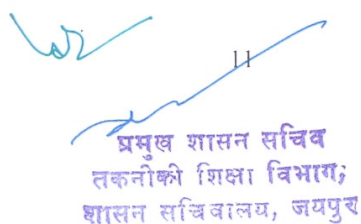 11
प्रमुख शासन सचिव
तकनीकी शिक्षा विभाग,
शासन सचिवालय, जयपुर